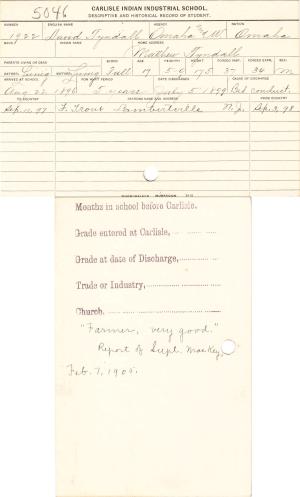 5046
CARLISLE INDIAN INDUSTRIAL SCHOOL.
DESCRIPTIVE AND HISTORICAL RECORD OF STUDENT.
NUMBER ENGLISH NAME AGENCY NATION
1922 David Tyndall Omaha Omaha
BAND INDIAN NAME HOME ADDRESS
Tyndall
PARENTS LIVING OR DEAD BLOOD AGE HEIGHT WEIGHT FORCED INSP. FORCED EXPR. SEX
FATHER Living MOTHER Living Full 17 5-0 95 37 34 m
ARRIVED AT SCHOOL FOR WHAT PERIOD DATE DISCHARGED CAUSE OF DISCHARGE
Aug 22 1896 5 years July 5 1899 Bad conduct.
TO COUNTRY PATRONS NAME AND ADDRESS FROM COUNTRY
Sep. 10, 97 F. Trout Lambertville N. J. Sep. 3, 98
Months in school before Carlisle,
Grade entered at Carlisle,
Grade at date of Discharge,
Trade or Industry,
Church.
"Farmer, very good."
Report of Supt. Mackey,
Feb. 7, 1909.